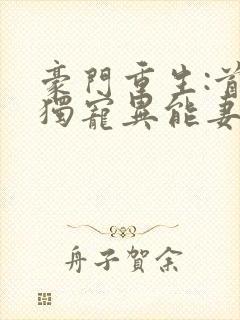 豪門重生:首
獨寵異能妻
舟子賀余